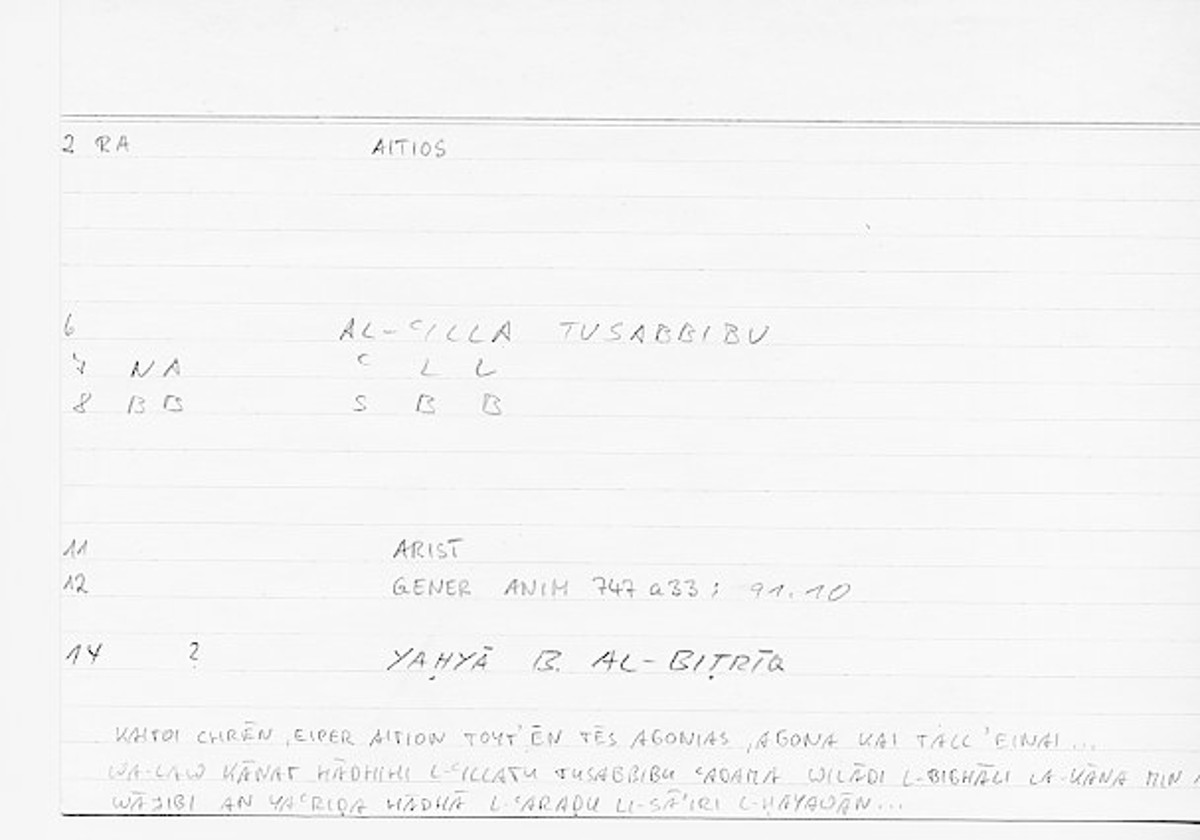 2 RA AITIOS
6 AL-ᶜILLA TUSABBIBU
7 NA ᶜ L L
8 BB S B B
11 ARIST
12 GENER ANIM 747 a33; 91.10
14 ? YAḤYĀ B. AL-BIṬRĪQ
KAITOI CHRĒN, EIPER AITION TOYT' ĒN TĒS AGONIAS, AGONA KAI TALL' EINAI...
WA-LAW KĀNAT HĀDHIHI L-ᶜILLATU TUSABBIBU ᶜADAMA WILĀDI L-BIGHĀLI LA-KĀNA MIN
WĀJIBI AN YAᶜRIḌA HĀDHĀ L-ᶜARAḌU LI-SĀ'IRI L-ḤAYAWĀN...